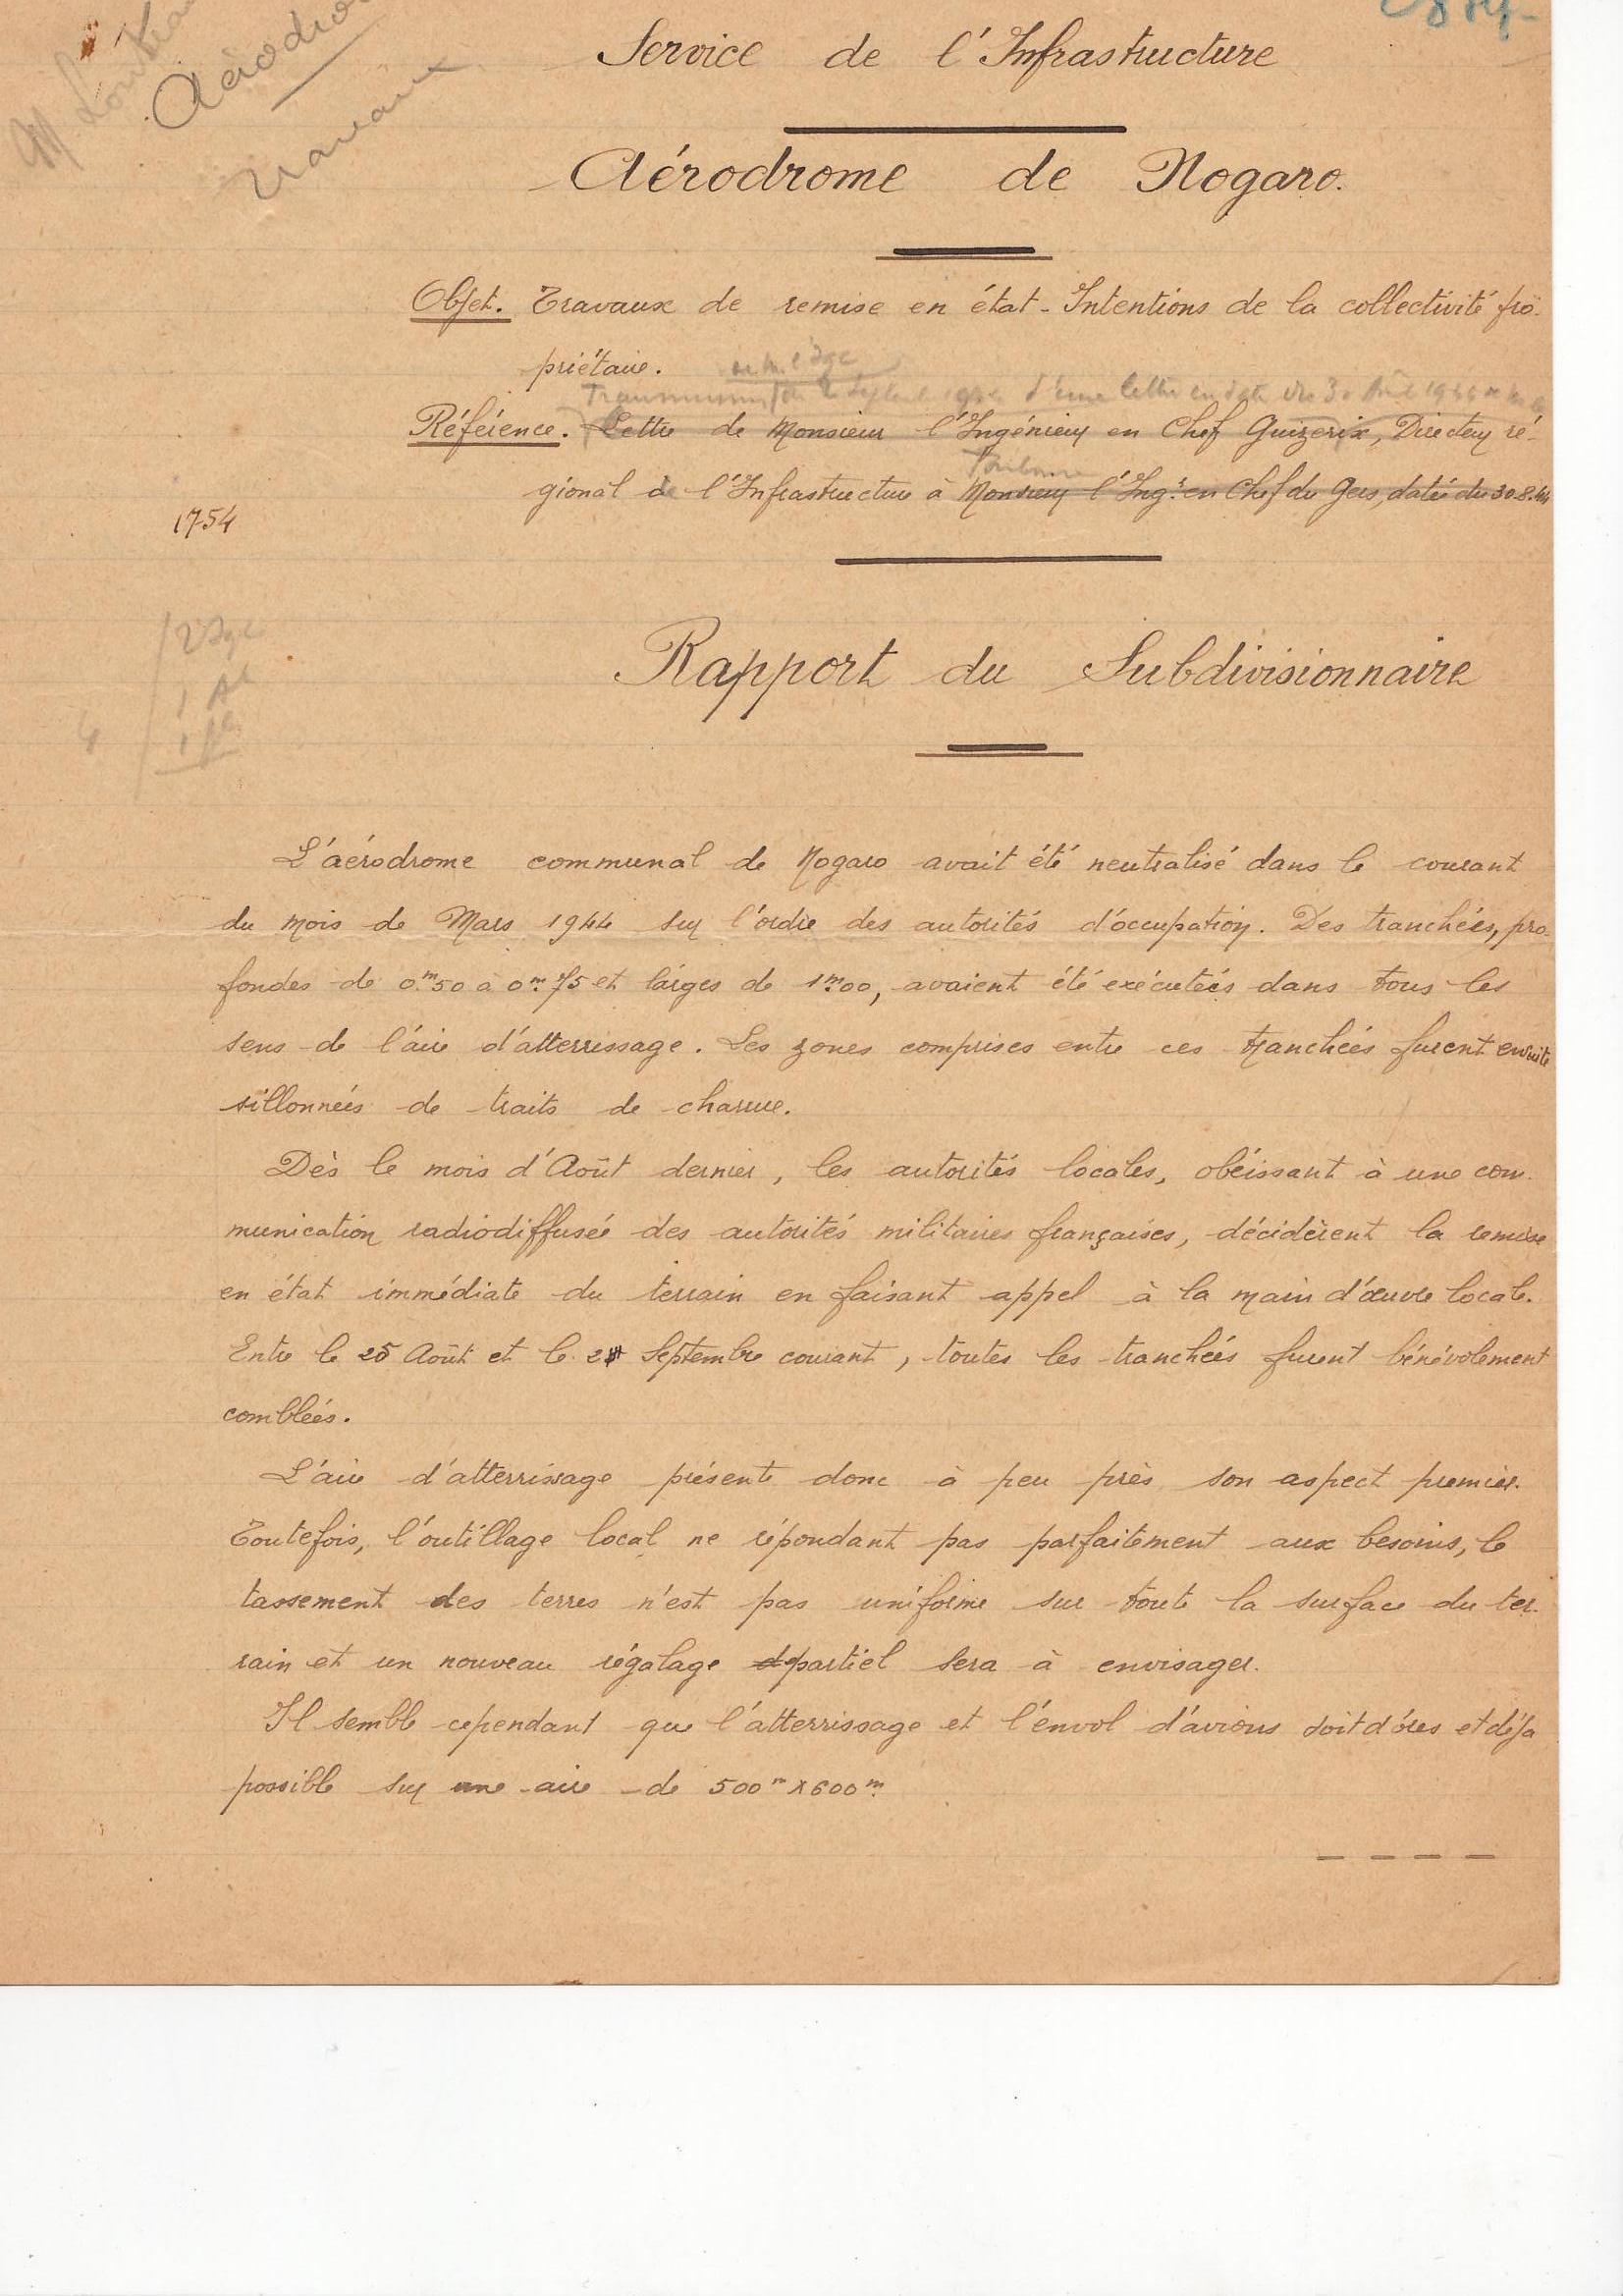 Aérodro
travaux
Service de l'Infrastructure
Aérodrome de Nogaro.
Objet. Travaux de remise en état - Intentions de la collectivité pro-
priétaire.
d'une lettre en date du 30 Août 1944
Référence. Lettre de Monsieur l'Ingénieur en Chef Guizerix, Directeur ré-
gional de l'Infrastructure à Monsieur l'Ingr en Chef du Gers, datée du 30.8.44
1754
Rapport du Subdivisionnaire
L'aérodrome communal de Nogaro avait été neutralisé dans le courant
du mois de Mars 1944 sur l'ordre des autorités d'occupation. Des tranchées, pro-
fondes de 0m50 à 0m.75 et larges de 1m.00, avaient été exécutées dans tous les
sens de l'aire d'atterrissage. Les zones comprises entre ces tranchées furent ensuite
sillonnées de traits de charrue.
Dès le mois d'Août dernier, les autorités locales, obéissant à une com-
munication radiodiffusée des autorités militaires françaises, décidèrent la remise
en état immédiate du terrain en faisant appel à la main d'œuvre locale.
Entre le 25 Août et le 2 Septembre courant, toutes les tranchées furent bénévolement
comblées.
L'aire d'atterrissage présente donc à peu près son aspect premier.
Toutefois, l'outillage local ne répondant pas parfaitement aux besoins, le
tassement des terres n'est pas uniforme sur toute la surface du ter-
rain et un nouveau régalage partiel sera à envisager.
Il semble cependant que l'atterrissage et l'envol d'avions soit d'ores et déjà
possible sur une aire de 500m x 600m.